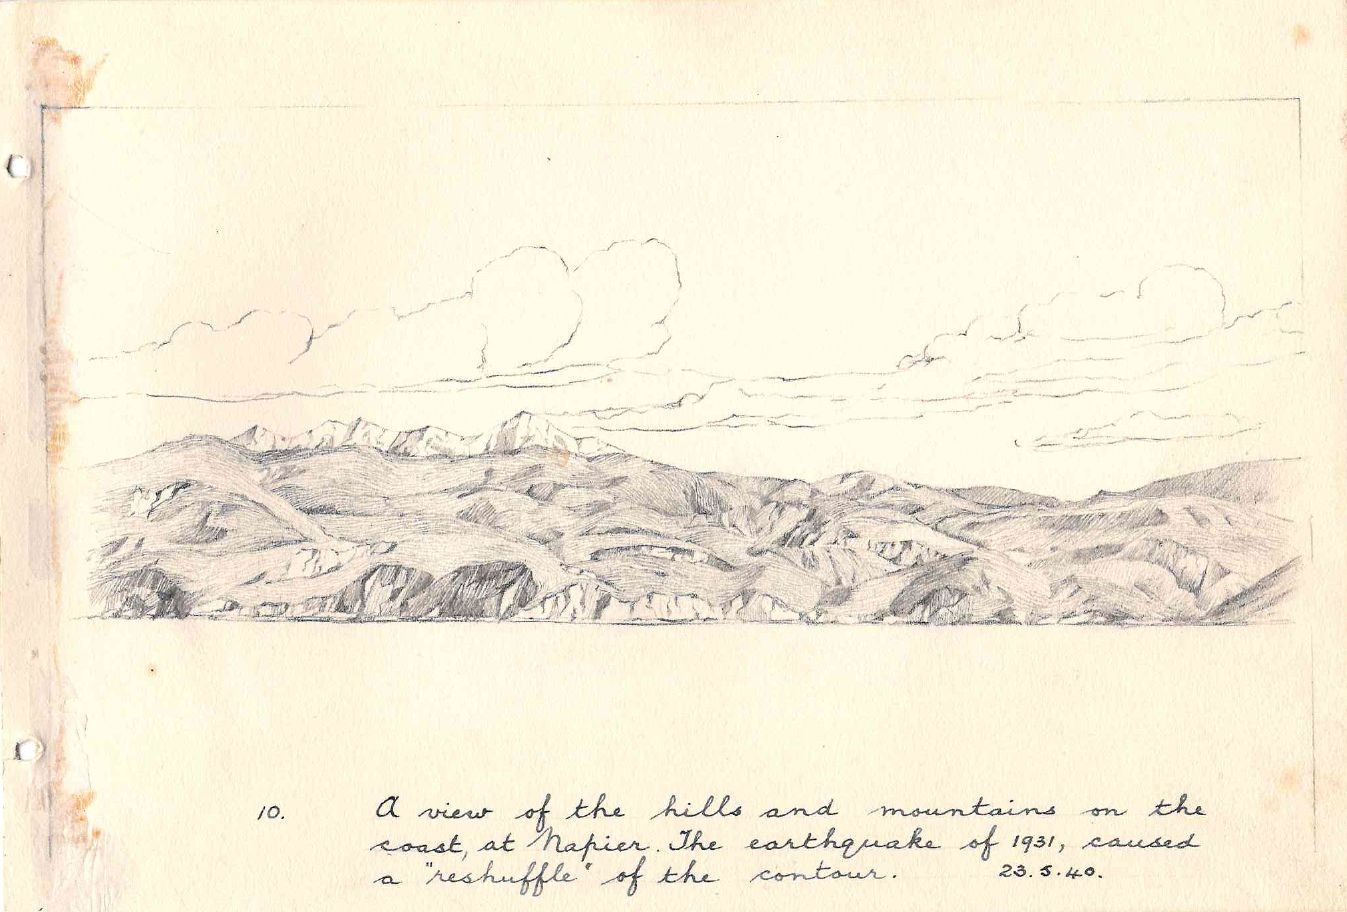 10. A view of the hills and mountains on the
coast, at Napier. The earthquake of 1931, caused
a "reshuffle" of the contour. 23.5.40.